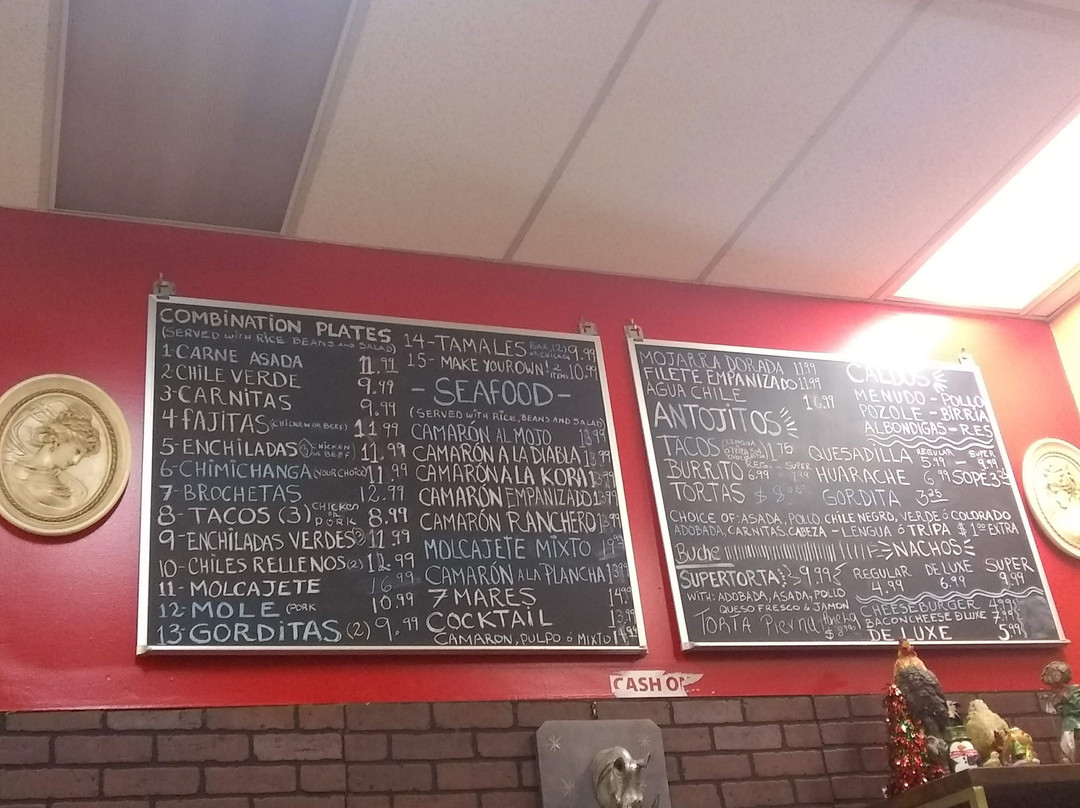 COMBINATION PLATES
(SERVED WITH RICE BEANS AND SALAD)
1-CARNE ASADA 11.99
2 CHILE VERDE 9.99
3-CARNITAS 9.99
4-FAJITAS (CHICKEN OR BEEF) 11.99
5-ENCHILADAS (3) CHICKEN OR BEEF 11.99
6-CHIMICHANGA (YOUR CHOICE) 11.99
7-BROCHETAS 12.99
8-TACOS (3) CHICKEN OR PORK 8.99
9-ENCHILADAS VERDES (3) 11.99
10-CHILES RELLENOS (2)
11-MOLCAJETE 16.99
12-MOLE (PORK 10.99
13-GORDITAS (2) 9.99
14-TAMALES (2) 9.99
15-MAKE YOUR OWN! 2 ITEMS 10.99
-SEAFOOD-
(SERVED WITH RICE, BEANS AND SALAD)
CAMARÓN AL MOJO 13.99
CAMARÓN A LA DIABLA 13.99
CAMARÓN A LA KORA 13.99
CAMARÓN EMPANIZADO 13.99
CAMARÓN RANCHERO 13.99
MOLCAJETE MIXTO
CAMARÓN A LA PLANCHA 13.99
7 MARES 14.99
COCKTAIL 13.99
CAMARON, PULPO ó MIXTO
MOJARRA DORADA 11.99
FILETE EMPANIZADO 11.99
AGUA CHILE
ANTOJITOS
TACOS 1.75
BURRITO REG. 6.99 - SUPER
TORTAS $
CALDOS
MENUDO - POLLO
POZOLE - BIRRIA
ALBONDIGAS - RES
QUESADILLA REGULAR 5.99 - SUPER 9.99
HUARACHE 6.99 SOPE 3.25
GORDITA 3.25
CHOICE OF: ASADA, POLLO, CHILE NEGRO, VERDE ó COLORADO
ADOBADA, CARNITAS, CABEZA - LENGUA ó TRIPA $1.00 EXTRA
Buche
NACHOS
REGULAR 4.99 DE LUXE 6.99 SUPER 9.99
SUPERTORTA 9.99
WITH: ADOBADA, ASADA, POLLO
QUESO FRESCO & JAMON
Torta Pierna
CHEESEBURGER 4.99
BACON CHEESE DLUXE 7.99
DE LUXE 5.99
CASH O